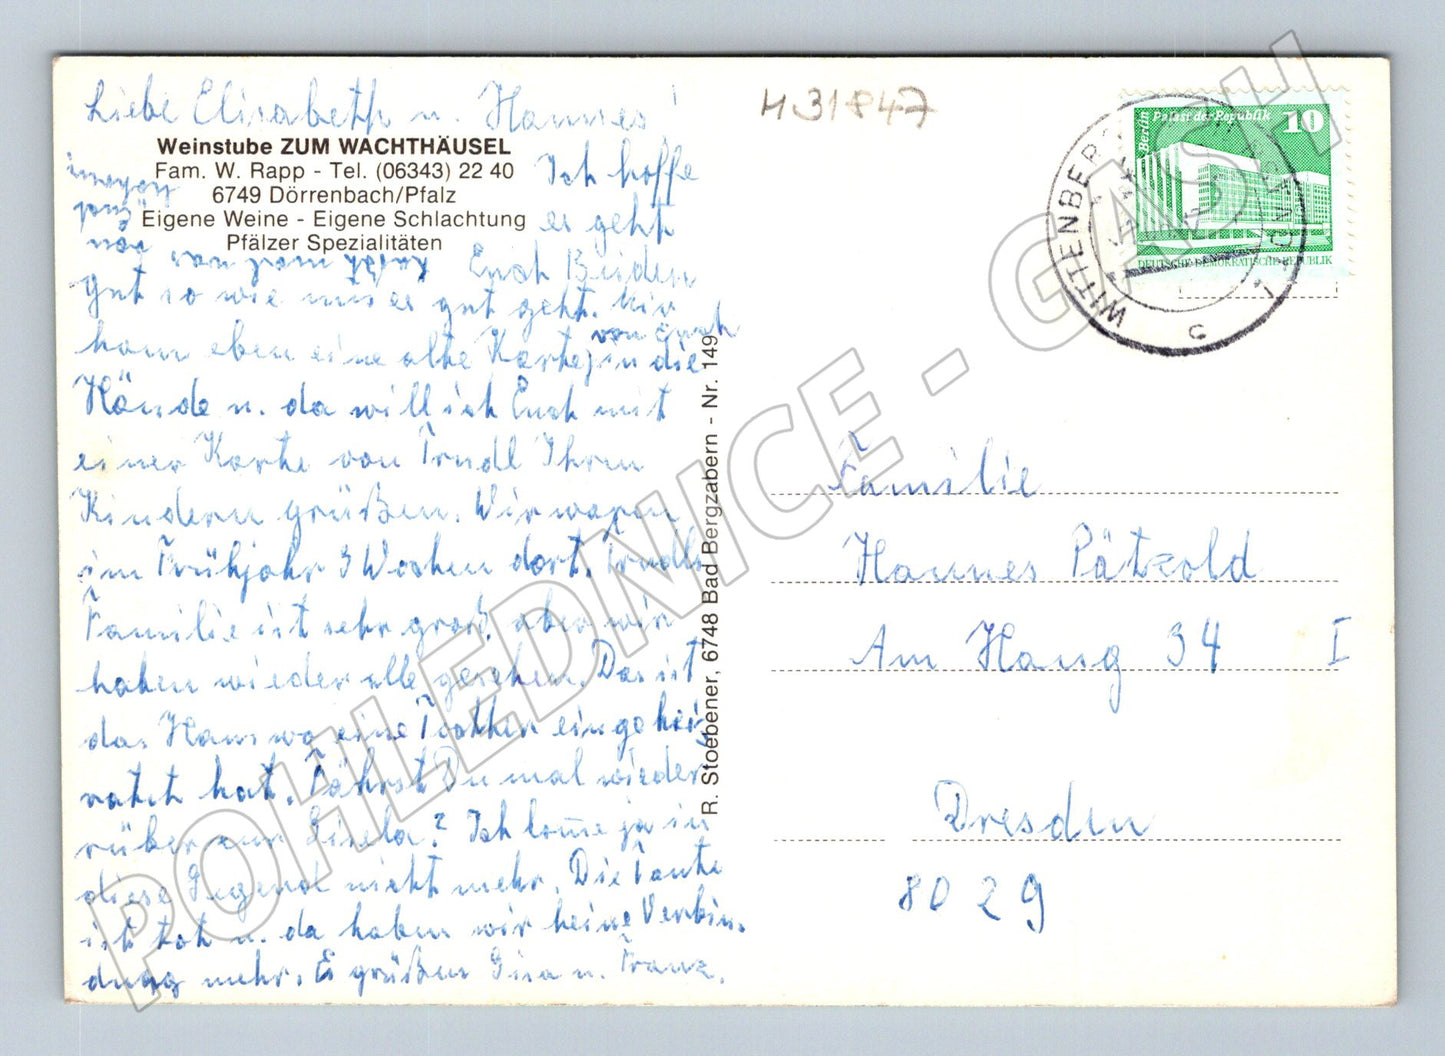 Liebe Elisabeth u. Hannes!
Weinstube ZUM WACHTHÄUSEL
Fam. W. Rapp - Tel. (06343) 22 40
6749 Dörrenbach/Pfalz
Eigene Weine - Eigene Schlachtung
Pfälzer Spezialitäten
Ich hoffe
es geht
Euch Beiden
gut so wie mir es gut geht. Mir
kam eben eine alte Karte von Euch in die
Hände u. da will ich Euch mit
einer Karte von Trudl Ihren
Kindern grüßen. Wir waren
im Frühjahr 3 Wochen dort. Trudls
Familie ist sehr groß, aber wir
haben wieder alle gesehen. Das ist
das Haus wo eine Tochter eingehei-
ratet hat. Fährst Du mal wieder
rüber zur Gisela? Ich komme ja in
diese Gegend nicht mehr. Die Tante
ist tot u. da haben wir keine Verbin-
dung mehr. Es grüßen u. Franz.
R. Stoebener, 6748 Bad Bergzabern - Nr. 149
H31847
Berlin Palast der Republik 10
DEUTSCHE DEMOKRATISCHE REPUBLIK
WITTENBERG
c
Familie
Hannes Pätzold
Am Hang 34 I
Dresden
8029
POHLEDNICE - GASH